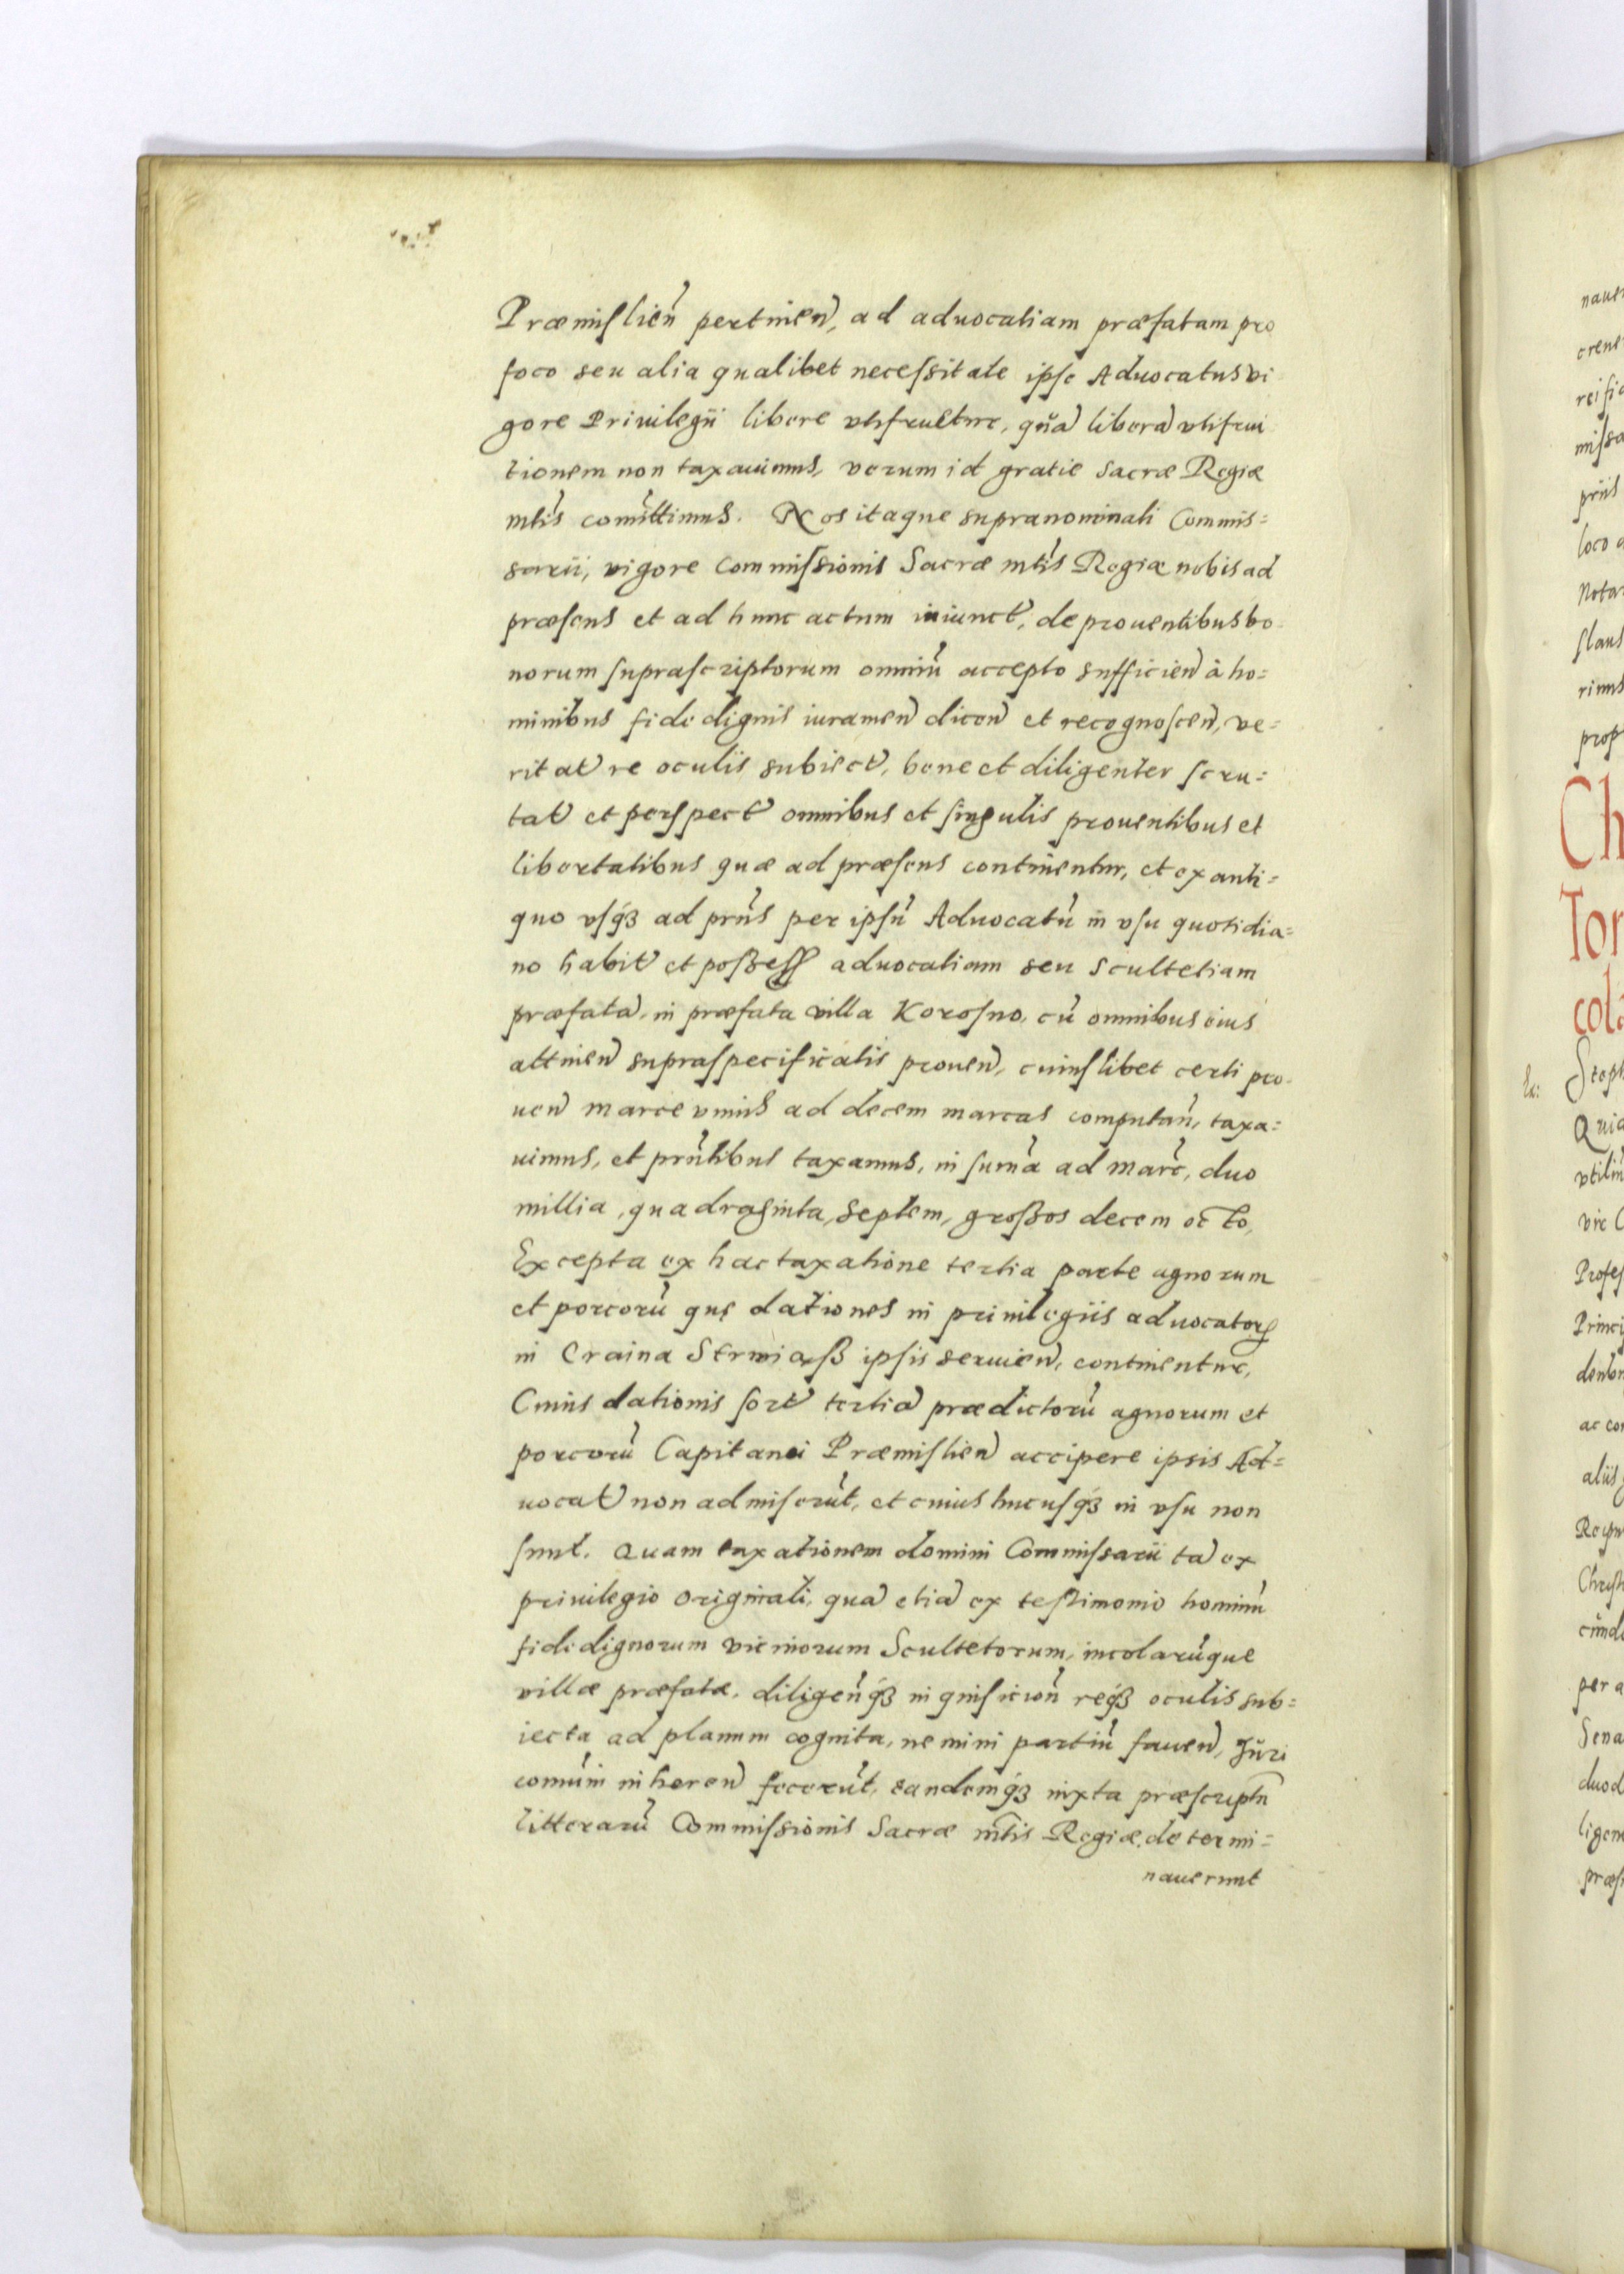 Præmislien̄ pertinen̄, ad aduocatiam præfatam pro
foco seu alia qualibet necessitate ipse Aduocatus vi
gore Priuilegii libere vtifruetur, qūa libera vtifrui
tionem non taxauimus, verum id gratie Sacræ Regiæ
mtis comittimus. Nos itaque supranominati Commis=
sarii, vigore commissionis Sacræ mtis Regiæ nobis ad
præsens et ad hunc actum iniunct, de prouentibus bo
norum suprascriptorum omniū accepto sufficien̄ à ho=
minibus fide dignis iuramen̄ dicen̄ et recognoscen̄, ve=
ritat re oculis subiect, bene et diligenter scru=
tat et perspect omnibus et singulis prouentibus et
libertatibus quæ ad præsens continentur, et ex anti=
quo vsqꝫ ad prn̄s per ipsū Aduocatū in vsu quotidia=
no habit et possess aduocatiam seu Scultetiam
præfata, in præfata villa Korosno, cū omnibus eius
attinen̄ supraspecificatis prouen̄, cuiuslibet certi pro
uen̄ marce vnius ad decem marcas computan̄, taxa=
uimus, et prn̄tibus taxamus, in sum̄a ad marc̄, duo
millia, quadraginta, septem, grossos decem octo,
Excepta ex hac taxatione tertia parte agnorum
et porcorū quę dationes in priuilegiis aduocatorꝝ
in Craina Strwiąß ipsis seruien̄, continentur,
Cuius dationis sort tertia prædictorū agnorum et
porcorū Capitanei Præmislien̄ accipere ipsis Ad=
uocat non admiserūt, et cuius hucusqꝫ in vsu non
sunt. Quam taxationem domini Commissarii ta ex
priuilegio originali, qua etia ex testimonio hominū
fide dignorum vicinorum Scultetorum, incolarūque
villæ præfatæ, diligen̄qꝫ inquisicion̄ reqꝫ oculis sub=
iecta ad planum cognita, nemini partiū fauen̄, Jūri
comūni inheren̄ fecerūt, eandemqꝫ iuxta præscriptn̄
litterarū Commissionis Sacræ mtis Regiæ, determi=
nauerunt
naue
crene
rei fic
missa
priis
loco
Nota
slaus
rimus
prop
Ch
Tor
cola
Ex:
Steph
Quia
vtilin
vir C
Profes
Princi
ac con
aliis
Christ
per a
Sena
duod
ligen
præs